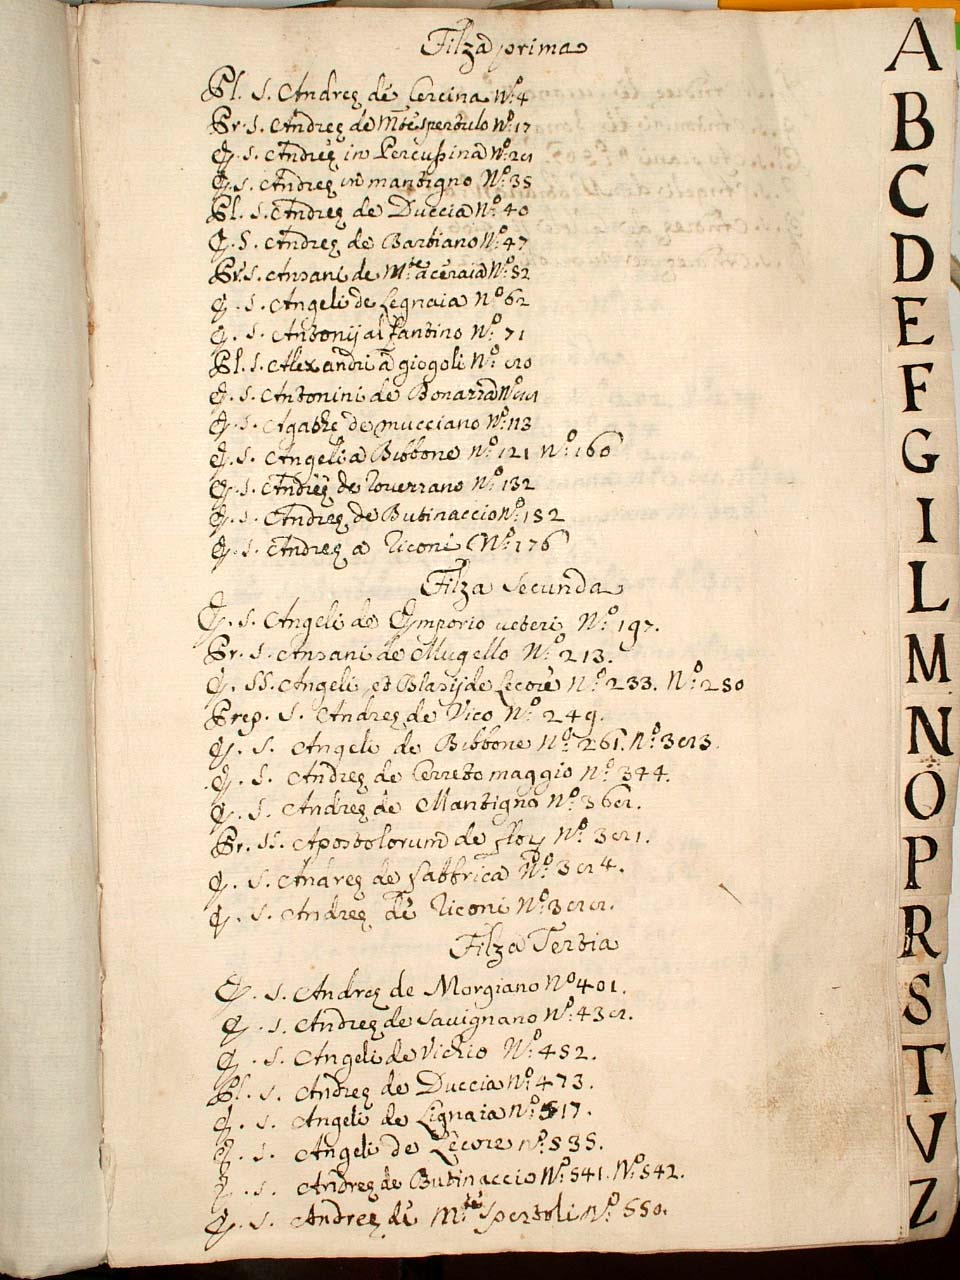 Filza prima
Pl. S. Andreę de Cercina N.º 4
Pr. S. Andreę de M.te Spertulo N.º 17
E. S. Andreę in Percussina N.º
E. S. Andreę in mantigno N.º 35
Pl. S. Andreę de Duccia N.º 40
E. S. Andreę de Barbiano N.º 47
Pr. S. Ansani de M.te aceraia N.º 52
E. S. Angeli de Legnaia N.º 62
E. S. Antonij al fantino N.º 71
Pl. S. Alexandri a giogoli N.º
E. S. Antonini de Bonazza N.º
E. S. Agathe de mucciano N.º 113
E. S. Angeli a Bibbone N.º 121 N.º 160
E. S. Andreę de Rouezzano N.º 132
E. S. Andreę de Butinaccio N.º 152
E. S. Andreę a Riconi N.º 176
Filza Secunda
E. S. Angeli de Emporio ueteri N.º 197.
Pr. S. Ansani de Mugello N.º 213.
E. SS. Angeli et Blasij de Lecore N.º 233. N.º 250
Prep. S. Andreę de Vico N.º 249.
E. S. Angeli de Bibbone N.º 261. N.º 383.
E. S. Andreę de Cerreto maggio N.º 344.
E. S. Andreę de Mantigno N.º 368.
Pr. SS. Apostolorum de N.º 381.
E. S. Andreę de fabbrica N.º 384.
E. S. Andreę de Riconi N.º 388.
Filza Tertia
E. S. Andreę de Morgiano N.º 401.
E. S. Andreę de Sauignano N.º 438.
E. S. Angeli de Vichio N.º 452.
Pl. S. Andreę de Duccia N.º 473.
E. S. Angeli de Lignaia N.º 517.
E. S. Angeli de Lecore N.º 535.
E. S. Andreę de Butinaccio N.º 541. N.º 542.
E. S. Andreę de M.te Spertoli N.º 550.
A
B
C
D
E
F
G
I
L
M
N
O
P
R
S
T
V
Z